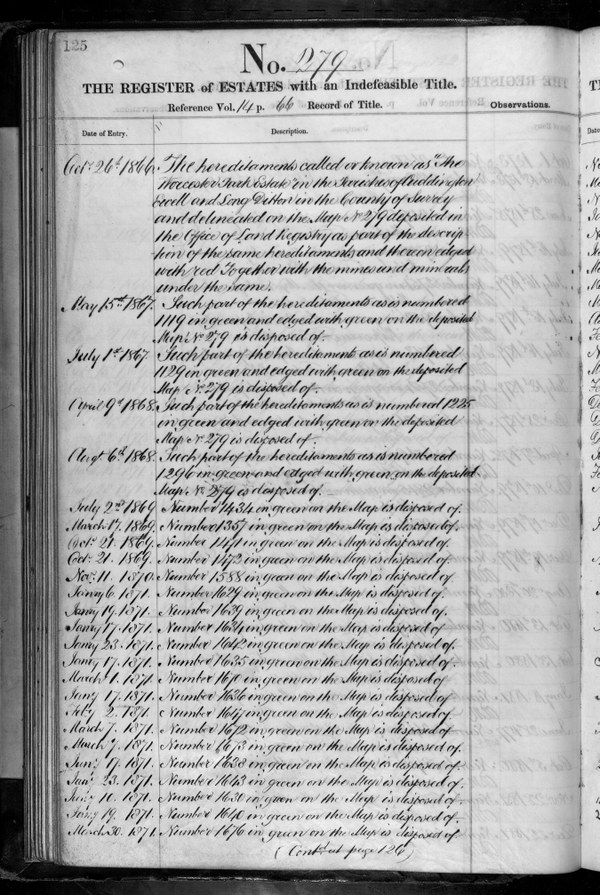 125
No. 279
THE REGISTER of ESTATES with an Indefeasible Title.
Reference Vol. 14 p. 66 Record of Title.
Observations.
Date of Entry.
Description.
Octr. 26th 1866. The hereditaments called or known as "The
Worcester Park Estate" in the Parishes of Cuddington
Ewell and Long Ditton in the County of Surrey
and delineated on the Map No 279 deposited in
the Office of Land Registry as part of the descrip-
tion of the same hereditaments and thereon edged
with red Together with the mines and minerals
under the same.
May 15th 1867. Such part of the hereditaments as is numbered
1119 in green and edged with green on the deposited
Map No 279 is disposed of.
July 1st 1867. Such part of the hereditaments as is numbered
1129 in green and edged with green on the deposited
Map No 279 is disposed of.
April 9th 1868. Such part of the hereditaments as is numbered 1225
in green and edged with green on the deposited
Map No 279 is disposed of.
Augt 6th 1868. Such part of the hereditaments as is numbered
1296 in green and edged with green on the deposited
Map No 279 is disposed of.
July 2nd 1869. Number 1434 in green on the Map is disposed of.
March 17. 1869. Number 1357 in green on the Map is disposed of.
Octr. 21. 1869. Number 1471 in green on the Map is disposed of.
Octr. 21. 1869. Number 1472 in green on the Map is disposed of.
Novr. 11. 1870. Number 1588 in green on the Map is disposed of.
Jany 6. 1871. Number 1629 in green on the Map is disposed of.
Jany 19. 1871. Number 1639 in green on the Map is disposed of.
Jany 17. 1871. Number 1634 in green on the Map is disposed of.
Jany 23. 1871. Number 1642 in green on the Map is disposed of.
Jany 17. 1871. Number 1635 in green on the Map is disposed of.
March 1. 1871. Number in green on the Map is disposed of
Jany 17. 1871. Number 1636 in green on the Map is disposed of.
Feby 2. 1871. Number 1647 in green on the Map is disposed of.
March 7. 1871. Number 1672 in green on the Map is disposed of.
March 7. 1871. Number 1673 in green on the Map is disposed of.
Jany 17. 1871. Number 1638 in green on the Map is disposed of.
Jany 23. 1871. Number 1643 in green on the Map is disposed of.
Jany 10. 1871. Number 1630 in green on the Map is disposed of.
Jany 19. 1871. Number 1640 in green on the Map is disposed of.
March 30. 1871. Number 1676 in green on the Map is disposed of
(Contd at page 126)